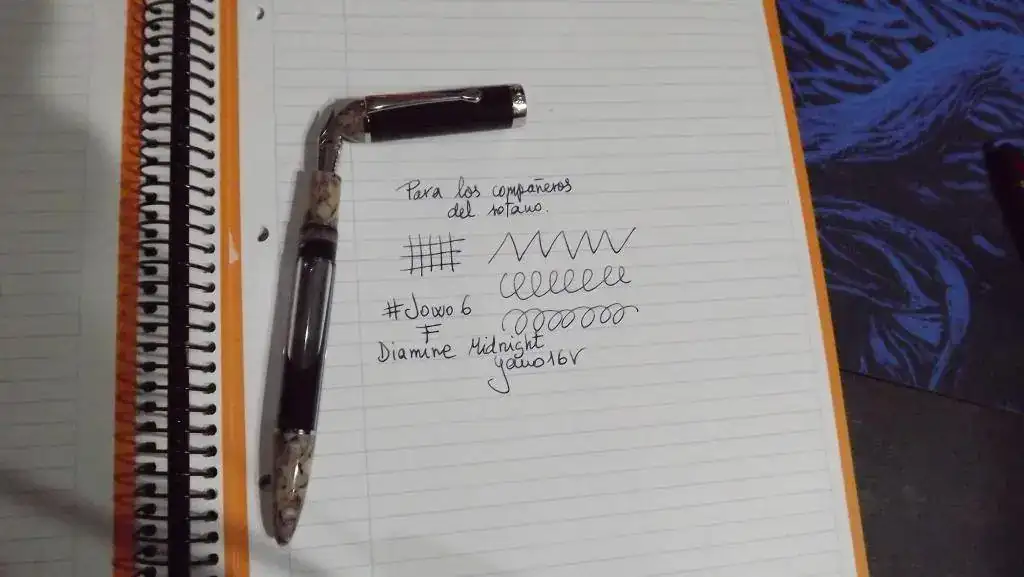 Para los compañeros
del sotano.
#Jowo 6
F
Diamine Midnight
yano16v